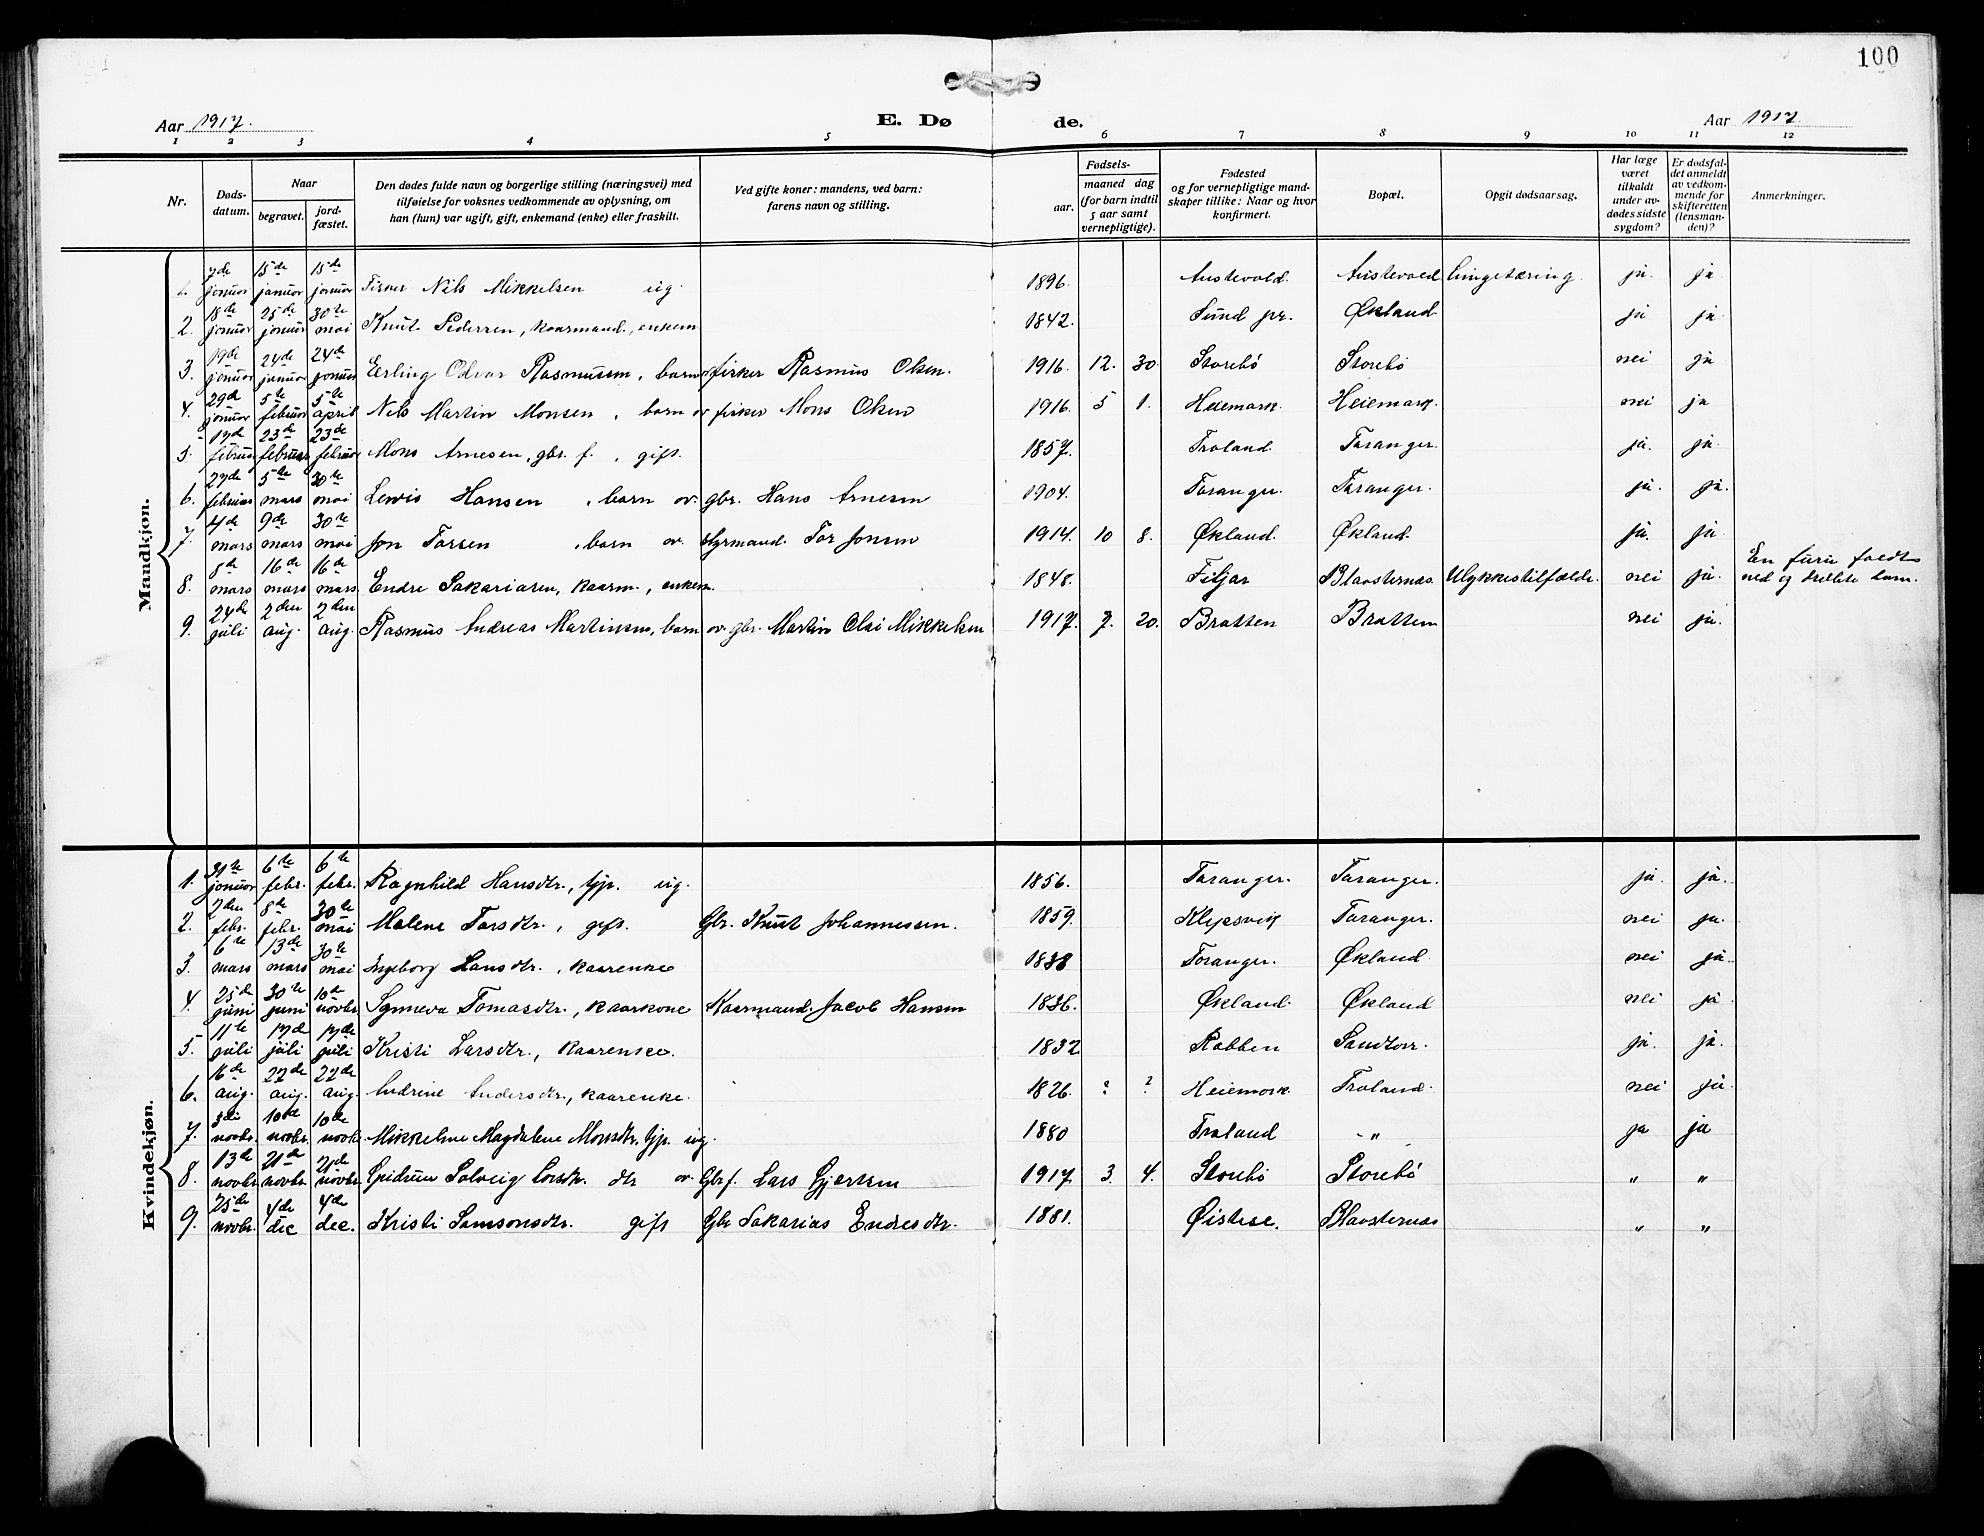 100
Aar 1917. E. Dø de. Aar 1917.
1 2 3 4 5 6 7 8 9 10 11 12
Nr. Døds-datum. Naar begravet. jord-fæstet. Den dødes fulde navn og borgerlige stilling (næringsvei) med tilføielse for voksnes vedkommende av oplysning, om han (hun) var ugift, gift, enkemand (enke) eller fraskilt. Ved gifte koner: mandens, ved barn: farens navn og stilling. Fødsels- aar. maaned dag (for barn indtil 5 aar samt vernepligtige). Fødested og for vernepligtige mand-skaper tillike: Naar og hvor konfirmert. Bopæl. Opgit dødsaarsag. Har læge været tilkaldt under av-dødes sidste sygdom? Er dødsfal-det anmeldt av vedkom-mende for skifteretten (lensman-den)? Anmerkninger.
Mandkjøn.
1. 7de januar 15de januar 15de januar Fisker Nils Mikkelsen ug. 1896. Austevold. Austevold lungetæring. ja. ja
2. 18de januar 25de januar 30te mai Knut Pedersen, kaarmand, enkem 1842. Sund pr. Økland ja ja
3. 19de januar 24de januar 24de januar Erling Odvar Rasmussen, barn av fisker Rasmus Olsen. 1916. 12. 30. Storebø Storebø nei ja
4. 29de januar 5te februar 5te april Nils Martin Monsen, barn av fisker Mons Olsen 1916. 5 1. Heiemark. Heiemark. nei ja
5. 17de februar 23de februar 23de februar Mons Arnesen, gbr. f., gift. 1857. Troland Toranger. ja. ja.
6. 27de februar 5te mars 30te mai Lewis Hansen, barn av. gbr. Hans Arnesen 1904. Toranger. Toranger. ja. ja.
7. 4de mars 9de mars 30te mai Jon Torsen, barn av. styrmand Tor Jonsen 1914. 10 8. Økland. Økland. ja. ja.
8. 8de mars 16de mars 16de mars Endre Sakariasen, kaarm., enkem. 1848. Fitjar Blaosternæs. Ulykkestilfælde. nei ja. En furu faldt ned og dræbte ham.
9. 24de juli 2den aug. 2den aug. Rasmus Andreas Martinsen, barn av gbr. Martin Olai Mikkelsen 1917. 7. 20. Bratten Bratten nei ja.
Kvindekjøn.
1. 31te januar 6te febr. 6te febr. Ragnhild Hansdtr., tjp. ug. 1856. Toranger. Toranger. ja. ja.
2. 2den febr. 8de febr. 30te mai Malene Torsdtr., gift. Gbr. Knut Johannessen. 1859. Klepsvik Toranger. nei ja.
3. 6te mars 13de mars 30te mai Ingeborg Larsdtr., kaarenke 1838 Toranger. Økland nei ja.
4. 25de juni 30te juni 10de novbr. Synneva Tomasdtr., kaarkone Kaarmand Jacob Hansen 1836. Økland. Økland nei ja
5. 11te juli 17de juli 17de juli Kristi Larsdtr., kaarenke. 1832 Rabben Sandtorr. ja. ja.
6. 16de aug. 22de aug. 22de aug. Andrine Andersdtr., kaarenke. 1826. ? ? Heiemark. Troland. nei ja
7. 3die novbr. 10de novbr. 10de novbr. Mikkeline Magdalene Monsdtr. tjp. ug. 1880 Troland - " ja ja
8. 13de novbr. 21de novbr. 21de novbr. Gudrun Solveig Larsdtr. dtr av. Gbrf. Lars Gjertsen 1917. 3. 4. Storebø Storebø " "
9. 25de novbr. 4de dec 4de dec. Kristi Samsonsdtr. gift Gbr Sakarias Endresdtr. 1881. Øistese. Blaosternæs " "